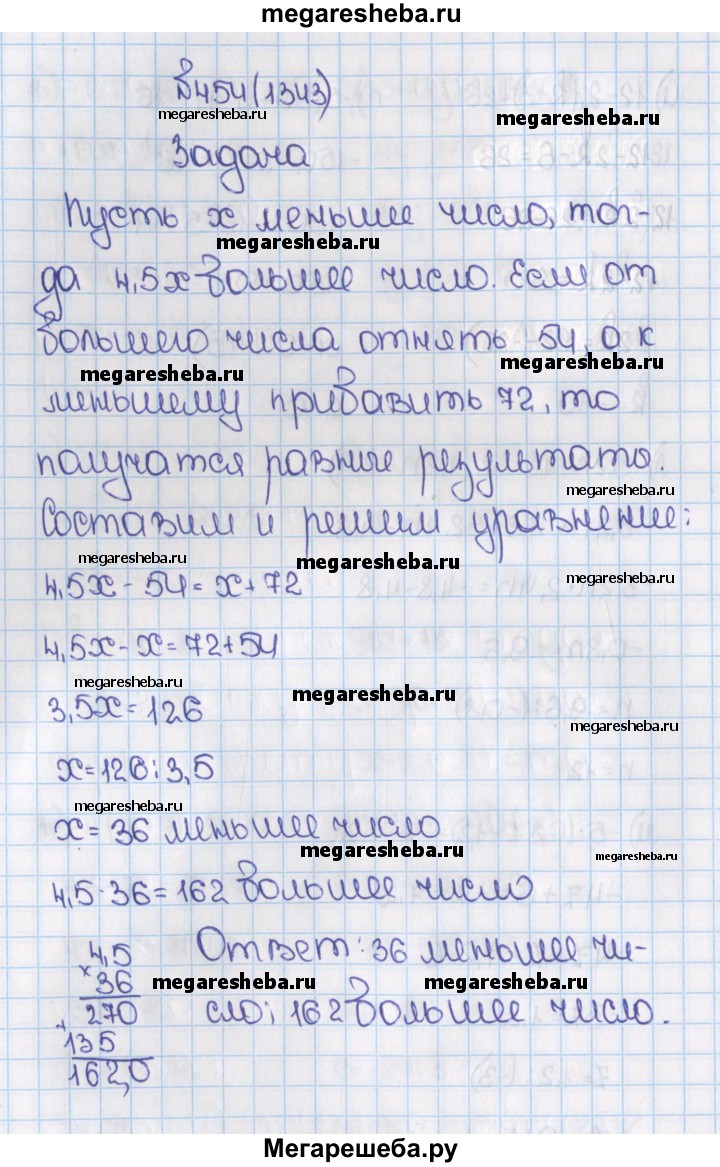 megaresheba.ru
№454(1343)
megaresheba.ru
megaresheba.ru
Задача
Пусть x меньшее число, тог-
megaresheba.ru
да 4,5x большее число. Если от
большего числа отнять 54, а к
megaresheba.ru
megaresheba.ru
меньшему прибавить 72, то
получатся равные результаты.
megaresheba.ru
Составим и решим уравнение:
megaresheba.ru
megaresheba.ru
megaresheba.ru
4,5x - 54 = x + 72
4,5x - x = 72 + 54
megaresheba.ru
megaresheba.ru
3,5x = 126
megaresheba.ru
x = 126 : 3,5
megaresheba.ru
x = 36 меньшее число
megaresheba.ru
megaresheba.ru
4,5 · 36 = 162 большее число
4,5
× 36
270
+
135
162,0
Ответ: 36 меньшее чи-
megaresheba.ru
megaresheba.ru
сло; 162 большее число.
Мегарешеба.ру